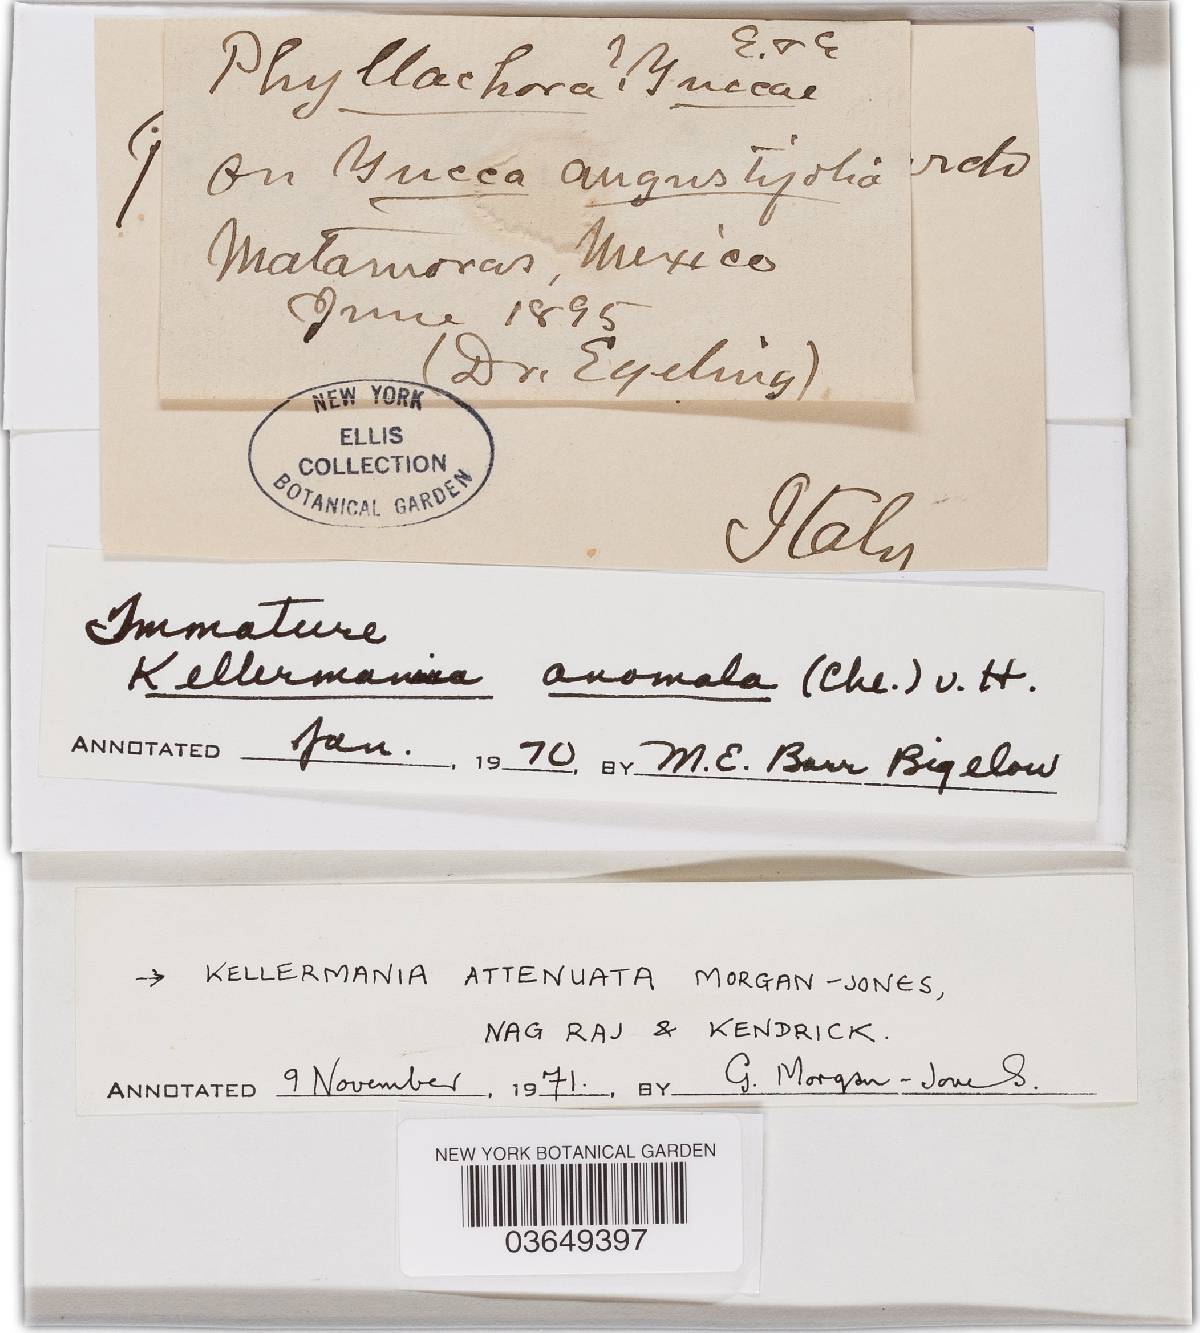 Phyllachora? Yuccae E. & E
on Yucca angustifolia
Matamoras, Mexico
June 1895
(Dr. Egeling)
NEW YORK
ELLIS
COLLECTION
BOTANICAL GARDEN
Italy
Immature
Kellermania anomala (Cke.) v. H.
ANNOTATED Jan. , 1970, BY M.E. Barr Bigelow
→ KELLERMANIA ATTENUATA MORGAN-JONES,
NAG RAJ & KENDRICK.
ANNOTATED 9 November , 1971. , BY G. Morgan-Jones.
NEW YORK BOTANICAL GARDEN
03649397